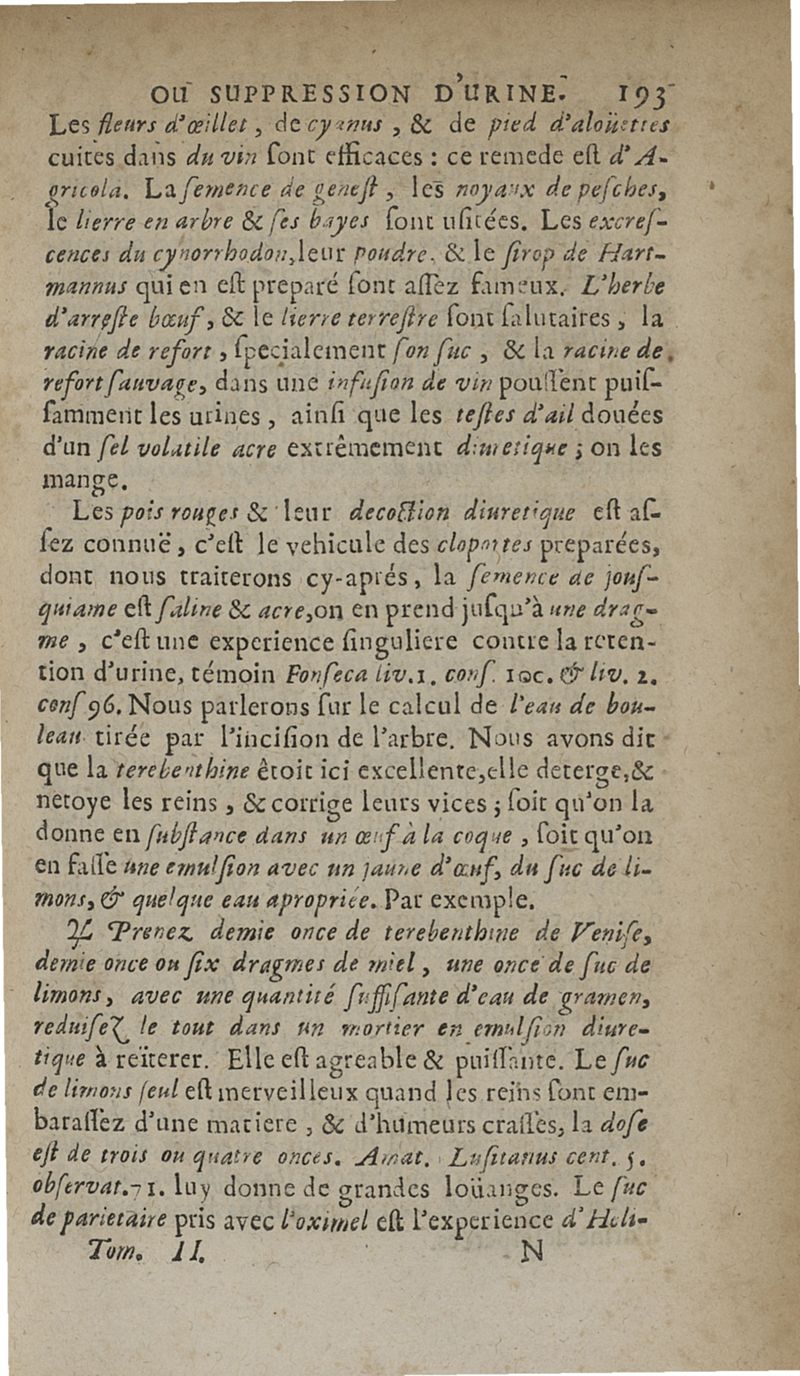 OU SUPPRESSION D'URINE. 193
Les fleurs d'œillet, de cyanus, & de pied d'aloüettes
cuites dans du vin ſont efficaces : ce remede eſt d'A-
gricola. La ſemence de geneſt, les noyaux de peſches,
le lierre en arbre & ſes bayes ſont uſitées. Les excreſ-
cences du cynorrhodon, leur poudre, & le ſirop de Hart-
mannus qui en eſt preparé ſont aſſez fameux. L'herbe
d'arreſte bœuf, & le lierre terreſtre ſont ſalutaires, la
racine de refort, ſpecialement ſon ſuc, & la racine de
refort ſauvage, dans une infuſion de vin pouſſent puiſ-
ſamment les urines, ainſi que les teſtes d'ail douées
d'un ſel volatile acre extrêmement diuretique ; on les
mange.
Les pois rouges & leur decoction diuretique eſt aſ-
ſez connuë, c'eſt le vehicule des cloportes preparées,
dont nous traiterons cy-aprés, la ſemence de jouſ-
quiame eſt ſaline & acre, on en prend juſqu'à une drag-
me, c'eſt une experience ſinguliere contre la reten-
tion d'urine, témoin Fonſeca liv. 1. conſ. 10c. & liv. 2.
conſ 96. Nous parlerons ſur le calcul de l'eau de bou-
leau tirée par l'inciſion de l'arbre. Nous avons dit
que la terebenthine êtoit ici excellente, elle deterge, &
netoye les reins, & corrige leurs vices ; ſoit qu'on la
donne en ſubſtance dans un œuf à la coque, ſoit qu'on
en faſſe une emulſion avec un jaune d'œuf, du ſuc de li-
mons, & quelque eau apropriée. Par exemple.
♃ Prenez demie once de terebenthine de Veniſe,
demie once ou ſix dragmes de miel, une once de ſuc de
limons, avec une quantité ſuffiſante d'eau de gramen,
reduiſez le tout dans un mortier en emulſion diure-
tique à reïterer. Elle eſt agreable & puiſſante. Le ſuc
de limons ſeul eſt merveilleux quand les reins ſont em-
baraſſez d'une matiere, & d'humeurs craſſes, la doſe
eſt de trois ou quatre onces. Amat. Luſitanus cent. 5.
obſervat. 71. luy donne de grandes loüanges. Le ſuc
de parietaire pris avec l'oximel eſt l'experience d'Heli-
Tom. II. N